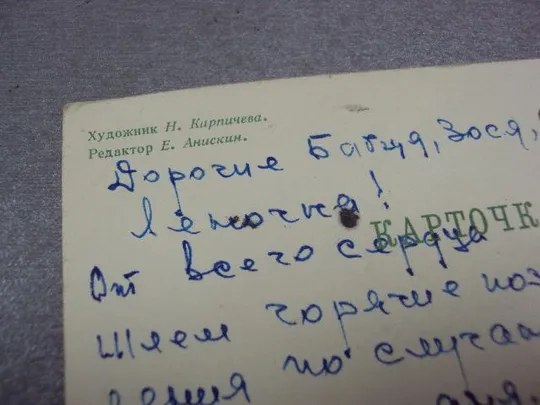 Художник Н. Кирпичева.
Редактор Е. Анискин.
Дорогие Бабця, Зося,
Леночка!
КАРТОЧК
От всего сердца
шлем горячие поз
по случа